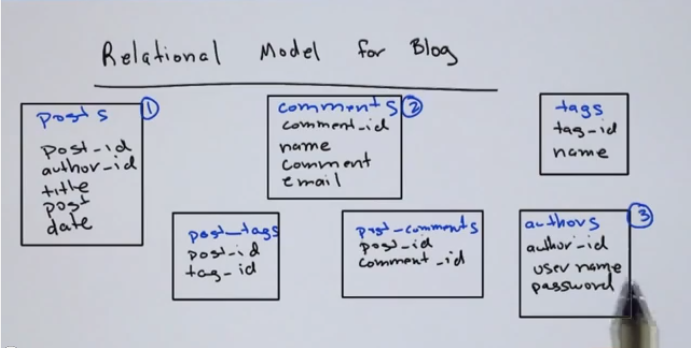 Relational Model for Blog
posts 1
post_id
author_id
title
post
date
comments 2
comment_id
name
comment
email
tags
tag_id
name
post_tags
post_id
tag_id
post_comments
post_id
comment_id
authors 3
author_id
username
password